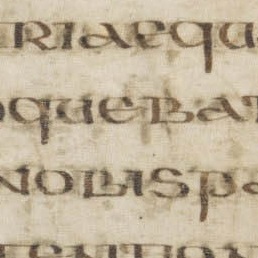 RIAEQU
OQUEBAT
NOBISPA